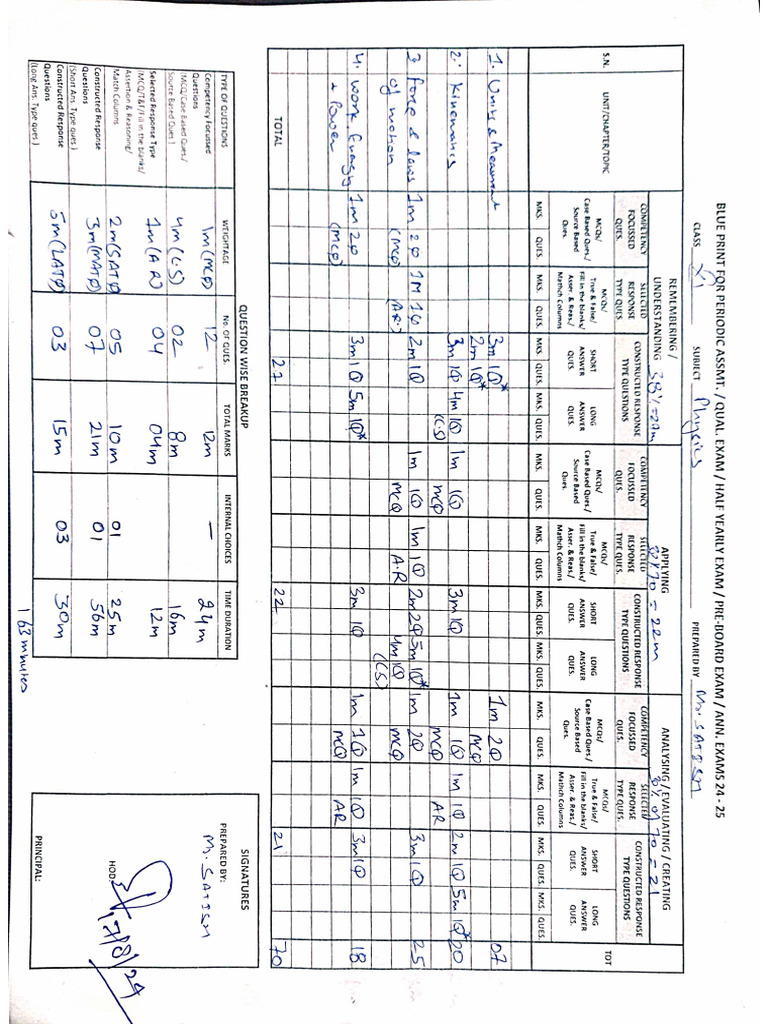 BLUE PRINT FOR PERIODIC ASSMT. / QUAL. EXAM / HALF YEARLY EXAM / PRE-BOARD EXAM / ANN. EXAMS 24 - 25
CLASS XI SUBJECT Physics PREPARED BY Mr. SATISH
S.N. UNIT/CHAPTER/TOPIC REMEMBERING / UNDERSTANDING 38%=27m APPLYING 32%70 = 22m ANALYSING / EVALUATING / CREATING 31% of 70 = 21 TOT
COMPETENCY FOCUSSED QUES. SELECTED RESPONSE TYPE QUES. CONSTRUCTED RESPONSE TYPE QUESTIONS COMPETENCY FOCUSSED QUES. SELECTED RESPONSE TYPE QUES. CONSTRUCTED RESPONSE TYPE QUESTIONS COMPETENCY FOCUSSED QUES. SELECTED RESPONSE TYPE QUES. CONSTRUCTED RESPONSE TYPE QUESTIONS
MCQs/ Case Based Ques/ Source Based Ques. MCQs/ True & False/ Fill in the blanks/ Asser. & Reas./ Mathch Columns SHORT ANSWER QUES. LONG ANSWER QUES. MCQs/ Case Based Ques/ Source Based Ques. MCQs/ True & False/ Fill in the blanks/ Asser. & Reas./ Mathch Columns SHORT ANSWER QUES. LONG ANSWER QUES. MCQs/ Case Based Ques/ Source Based Ques. MCQs/ True & False/ Fill in the blanks/ Asser. & Reas./ Mathch Columns SHORT ANSWER QUES. LONG ANSWER QUES.
MKS. QUES. MKS. QUES. MKS. QUES. MKS. QUES. MKS. QUES. MKS. QUES. MKS. QUES. MKS. QUES. MKS. QUES. MKS. QUES. MKS. QUES. MKS. QUES.
1. Units & Measurmt 3m 1Q* 1m 2Q 07
2m 1Q* MCQ
2. Kinematics 3m 1Q 4m 1Q 1m 1Q 3m 1Q 1m 1Q 1m 1Q 2m 1Q 5m 1Q* 20
(CS) MCQ MCQ AR
3 force & laws 1m 2Q 1M 1Q 2m 1Q 1m 1Q 1m 1Q 2m 2Q 5m 1Q* 1m 2Q 3m 1Q 25
of motion (MCQ) (AR.) MCQ A.R 4m 1Q MCQ
(CS)
4. work Energy 1m 2Q 3m 1Q 5m 1Q* 3m 1Q 1m 1Q 1m 1Q 3m 1Q 18
+ Power (MCQ) MCQ AR
TOTAL 27 22 21 70
QUESTION WISE BREAKUP
TYPE OF QUESTIONS WEIGHTAGE No. OF QUES. TOTAL MARKS INTERNAL CHOICES TIME DURATION
Competency Focussed Questions 1m (MCQ) 12 12m — 24m
(MCQ/Case Based Ques/ Source Based Ques ) 4m (CS) 02 8m 16m
Selected Response Type (MCQ/T&F/Fill in the blanks/ Assertion & Reasoning/ Match Columns 1m (AR) 04 04m 12m
Constructed Response Questions 2m (SATQ) 05 10m 01 25m
(Short Ans. Type ques ) 3m (MATQ) 07 21m 01 56m
Constructed Response Questions (Long Ans. Type ques ) 5m (LATQ) 03 15m 03 30m
163 minutes
SIGNATURES
PREPARED BY:
Mr. SATISH
HOD:
17/8/24
PRINCIPAL: